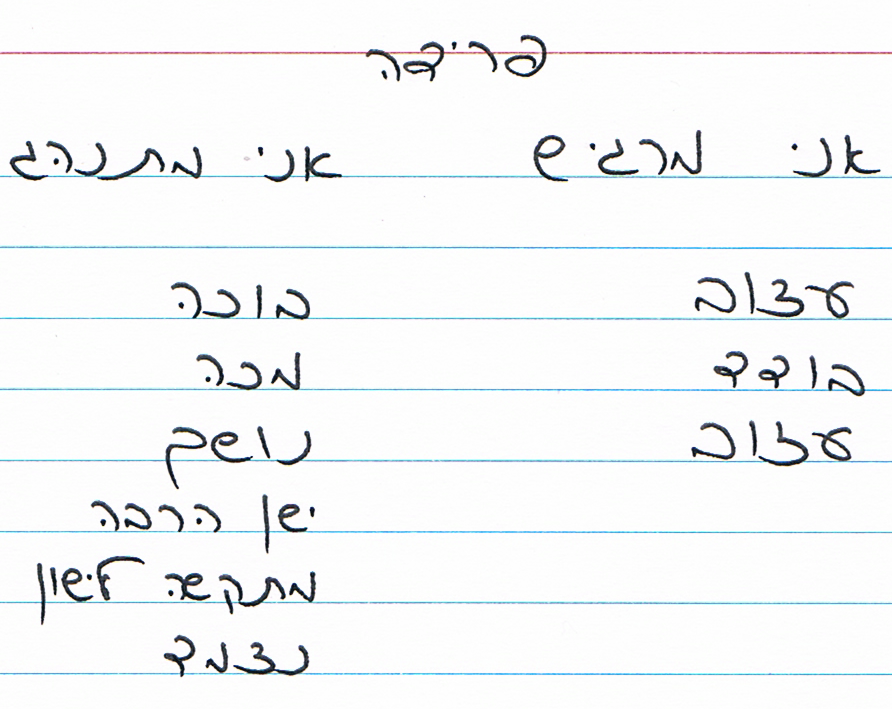 פרידה
אני מרגיש אני מתנהג
עצוב בוכה
בודד מכה
עצוב נושך
ישן הרבה
מתקשה לישון
נצמד